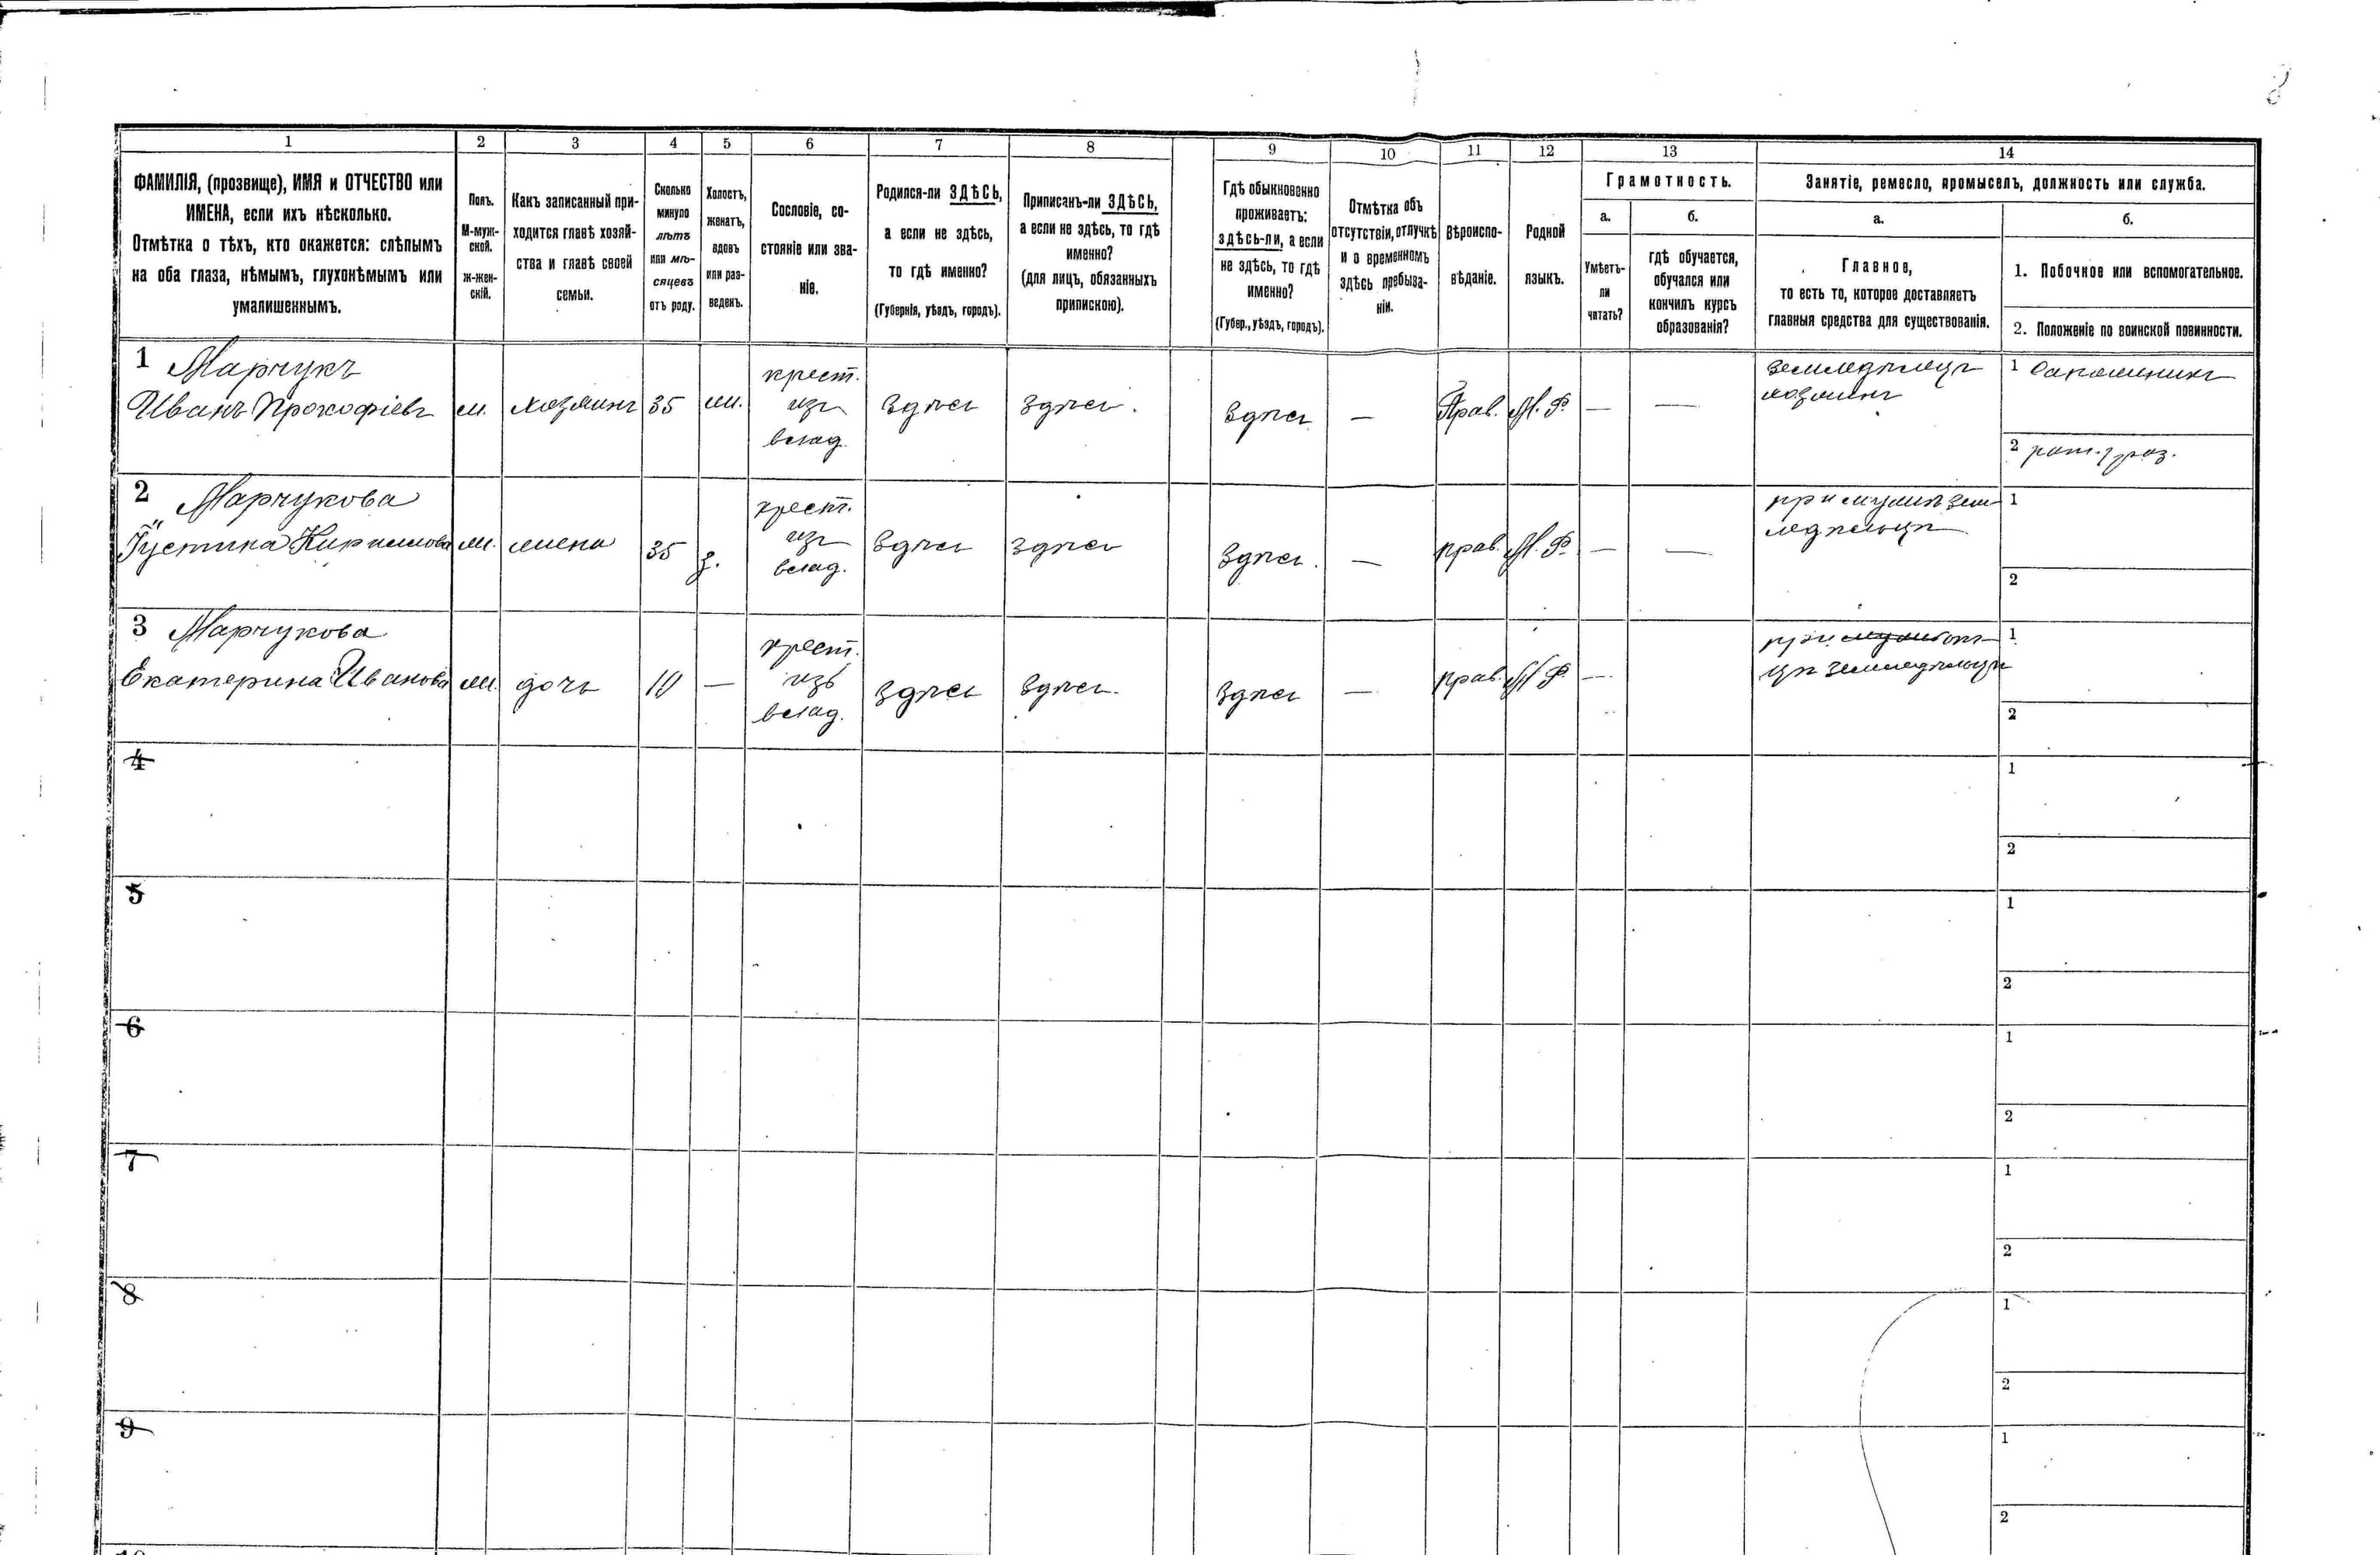 8
1
2
3
4
5
6
7
8
9
10
11
12
13
14
ФАМИЛІЯ, (прозвище), ИМЯ и ОТЧЕСТВО или
ИМЕНА, если ихъ нѣсколько.
Отмѣтка о тѣхъ, кто окажется: слѣпымъ
на оба глаза, нѣмымъ, глухонѣмымъ или
умалишеннымъ.
Полъ.
М-муж-
ской.
ж-жен-
скій.
Какъ записанный при-
ходится главѣ хозяй-
ства и главѣ своей
семьи.
Сколько
минуло
лѣтъ
или мѣ-
сяцевъ
отъ роду.
Холостъ,
женатъ,
вдовъ
или раз-
веденъ.
Сословіе, со-
стояніе или зва-
ніе.
Родился-ли ЗДѢСЬ,
а если не здѣсь,
то гдѣ именно?
(Губернія, уѣздъ, городъ).
Приписанъ-ли ЗДѢСЬ,
а если не здѣсь, то гдѣ
именно?
(для лицъ, обязанныхъ
припискою).
Гдѣ обыкновенно
проживаетъ:
здѣсь-ли, а если
не здѣсь, то гдѣ
именно?
(Губер., уѣздъ, городъ).
Отмѣтка объ
отсутствіи, отлучкѣ
и о временномъ
здѣсь пребыва-
ніи.
Вѣроиспо-
вѣданіе.
Родной
языкъ.
Грамотность.
а.
Умѣетъ-
ли
читать?
б.
гдѣ обучается,
обучался или
кончилъ курсъ
образованія?
Занятіе, ремесло, промыселъ, должность или служба.
а.
Главное,
то есть то, которое доставляетъ
главныя средства для существованія.
б.
1. Побочное или вспомогательное.
2. Положеніе по воинской повинности.
1 Марчукъ
Иванъ Прокофіевъ
м.
хозяинъ
35
ж.
крест.
изъ
влад.
Здѣсь
Здѣсь.
Здѣсь
—
Прав.
М. Р.
—
—
земледѣлецъ
хозяинъ
1 Сапожникъ
2 рат. 1 раз.
2 Марчукова
Іустина Кирилова
ж.
жена
35
з.
крест.
изъ
влад.
Здѣсь
здѣсь
Здѣсь.
—
прав.
М. Р.
—
—
при мужѣ зем
ледѣльцѣ
1
2
3 Марчукова
Екатерина Иванова
ж.
дочь
10
—
крест.
изъ
влад.
Здѣсь
Здѣсь.
Здѣсь
—
прав.
М Р.
—
при отъ
цѣ земледѣльцѣ
1
2
4
1
2
5
1
2
6
1
2
7
1
2
8
1
2
9
1
2